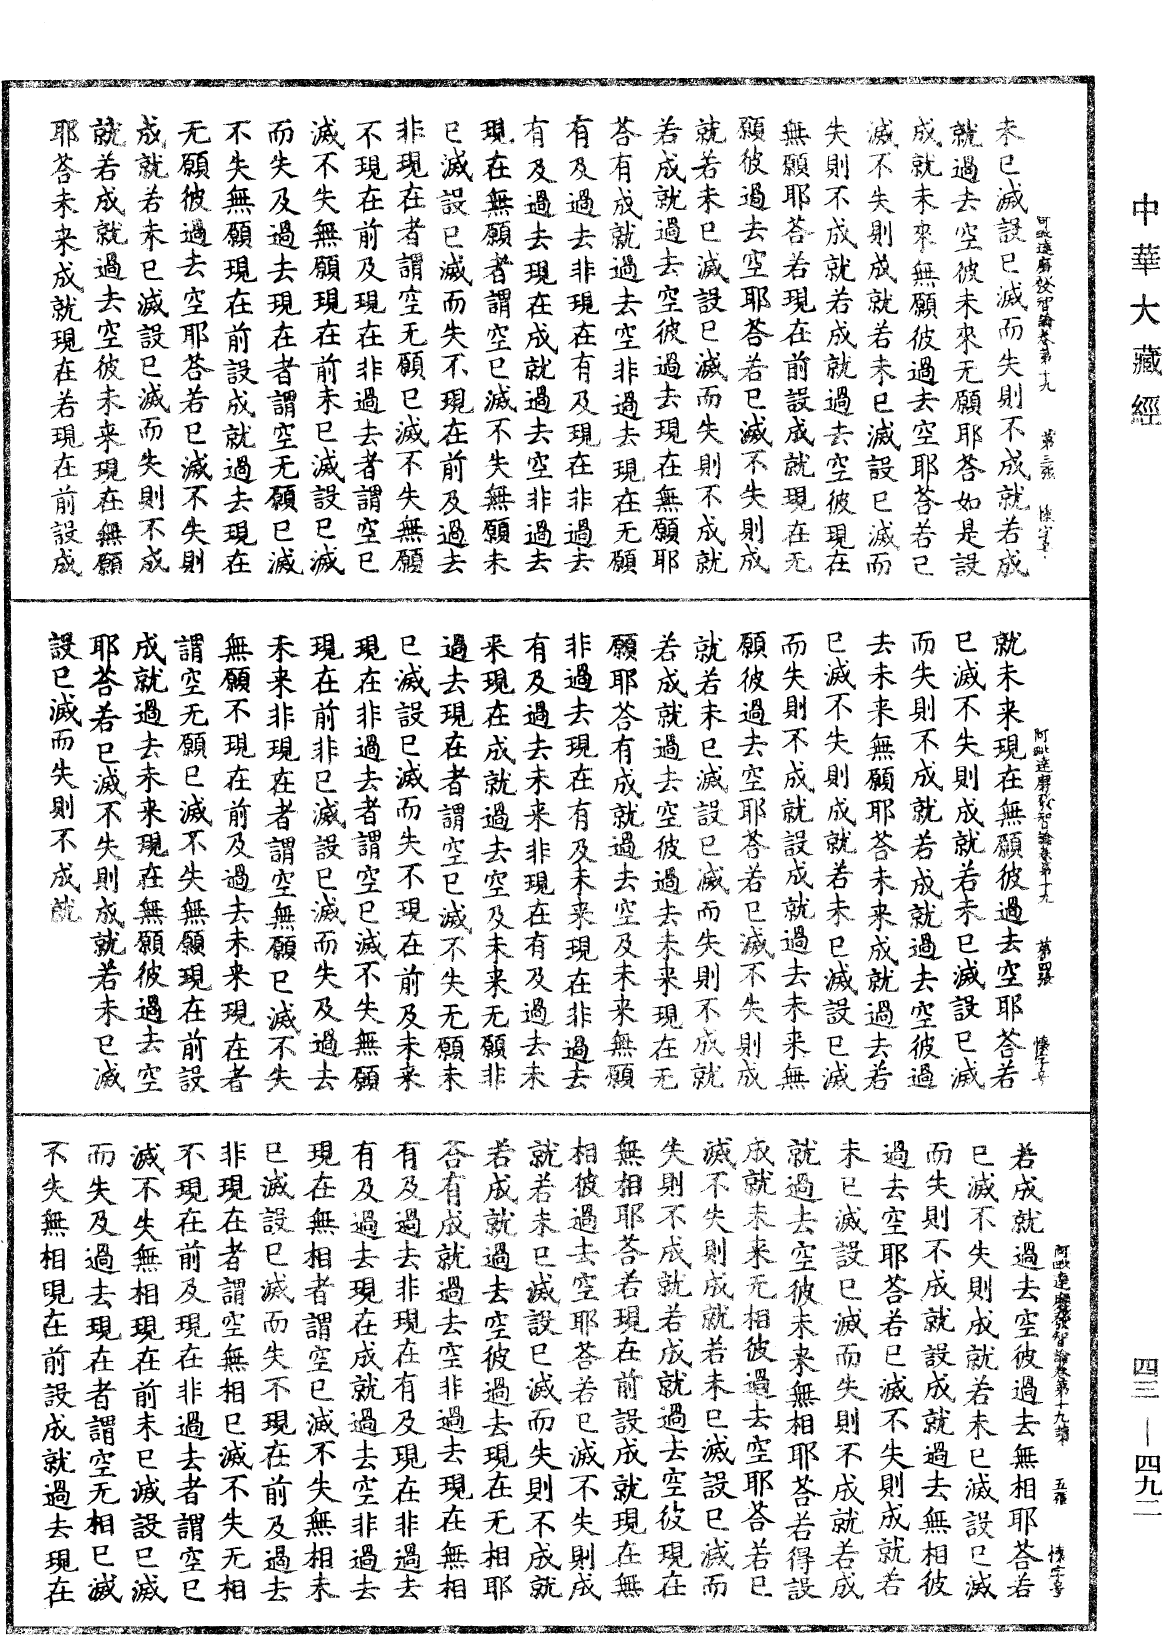 中華大藏經
未已滅設已滅而失則不成就若成
就過去空彼未來无願耶荅如是設
成就未來無願彼過去空耶荅若已
滅不失則成就若未已滅設已滅而
失則不成就若成就過去空彼現在
無願耶荅若現在前設成就現在无
願彼過去空耶荅若已滅不失則成
就若未已滅設已滅而失則不成就
若成就過去空彼過去現在無願耶
荅有成就過去空非過去現在无願
有及過去非現在有及現在非過去
有及過去現在成就過去空非過去
現在無願者謂空已滅不失無願未
已滅設已滅而失不現在前及過去
非現在者謂空无願已滅不失無願
不現在前及現在非過去者謂空已
滅不失無願現在前未已滅設已滅
而失及過去現在者謂空无願已滅
不失無願現在前設成就過去現在
无願彼過去空耶荅若已滅不失則
成就若未已滅設已滅而失則不成
就若成就過去空彼未来現在無願
耶荅未来成就現在若現在前設成
阿毗達磨發智論卷第十九 第三張 懐字号
就未来現在無願彼過去空耶荅若
已滅不失則成就若未已滅設已滅
而失則不成就若成就過去空彼過
去未来無願耶荅未来成就過去若
已滅不失則成就若未已滅設已滅
而失則不成就設成就過去未来無
願彼過去空耶荅若已滅不失則成
就若未已滅設已滅而失則不成就
若成就過去空彼過去未来現在无
願耶荅有成就過去空及未来無願
非過去現在有及未来現在非過去
有及過去未来非現在有及過去未
来現在成就過去空及未来无願非
過去現在者謂空已滅不失无願未
已滅設已滅而失不現在前及未来
現在非過去者謂空已滅不失無願
現在前非已滅設已滅而失及過去
未来非現在者謂空無願已滅不失
無願不現在前及過去未来現在者
謂空无願已滅不失無願現在前設
成就過去未来現在無願彼過去空
耶荅若已滅不失則成就若未已滅
設已滅而失則不成就
阿毗達磨發智論卷第十九 第四張 懐字号
若成就過去空彼過去無相耶荅若
已滅不失則成就若未已滅設已滅
而失則不成就設成就過去無相彼
過去空耶荅若已滅不失則成就若
未已滅設已滅而失則不成就若成
就過去空彼未来無相耶荅若得設
成就未来无相彼過去空耶荅若已
滅不失則成就若未已滅設已滅而
失則不成就若成就過去空彼現在
無相耶荅若現在前設成就現在無
相彼過去空耶荅若已滅不失則成
就若未已滅設已滅而失則不成就
若成就過去空彼過去現在无相耶
荅有成就過去空非過去現在無相
有及過去非現在有及現在非過去
有及過去現在成就過去空非過去
現在無相者謂空已滅不失無相未
已滅設已滅而失不現在前及過去
非現在者謂空無相已滅不失无相
不現在前及現在非過去者謂空已
滅不失無相現在前未已滅設已滅
而失及過去現在者謂空无相已滅
不失無相現在前設成就過去現在
阿毗達磨發智論卷第十九 五張 懐字号
四三—四九二